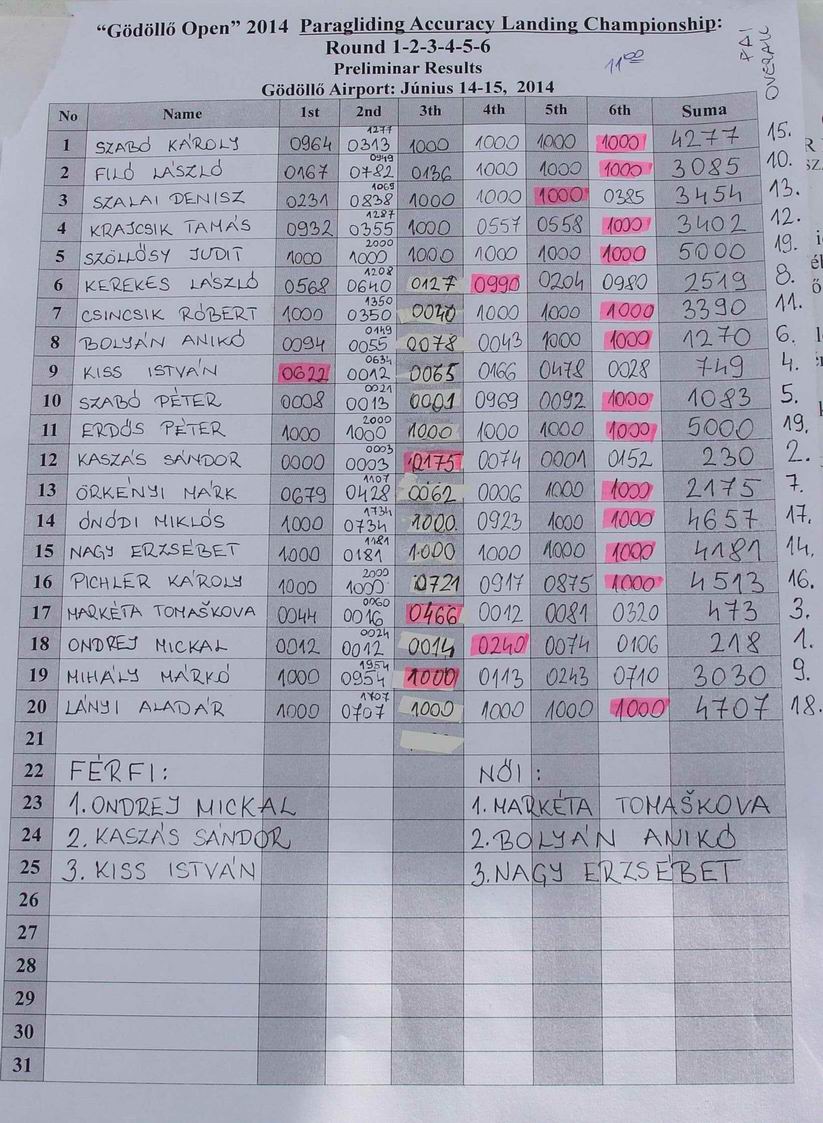 "Gödöllő Open" 2014 Paragliding Accuracy Landing Championship:
Round 1-2-3-4-5-6
Preliminar Results
11⁰⁰
FAI OVERALL
Gödöllő Airport: Június 14-15, 2014
No Name 1st 2nd 3th 4th 5th 6th Suma
1 SZABÓ KÁROLY 0964 1277 0313 1000 1000 1000 1000 4277 15.
2 FILÓ LÁSZLÓ 0167 0949 0782 0136 1000 1000 1000 3085 10.
3 SZALAI DENISZ 0231 1069 0838 1000 1000 1000 0385 3454 13.
4 KRAJCSIK TAMÁS 0932 1287 0355 1000 0557 0558 1000 3402 12.
5 SZÖLLŐSY JUDIT 1000 2000 1000 1000 1000 1000 1000 5000 19.
6 KEREKES LÁSZLÓ 0568 1208 0640 0127 0990 0204 0980 2519 8.
7 CSINCSIK RÓBERT 1000 1350 0350 0040 1000 1000 1000 3390 11.
8 BOLYÁN ANIKÓ 0094 0149 0055 0078 0043 1000 1000 1270 6.
9 KISS ISTVÁN 0622 0634 0012 0065 0166 0478 0028 749 4.
10 SZABÓ PÉTER 0008 0021 0013 0001 0969 0092 1000 1083 5.
11 ERDŐS PÉTER 1000 2000 1000 1000 1000 1000 1000 5000 19.
12 KASZÁS SÁNDOR 0000 0003 0003 0175 0074 0001 0152 230 2.
13 ÖRKÉNYI MÁRK 0679 1107 0428 0062 0006 1000 1000 2175 7.
14 ÓNÓDI MIKLÓS 1000 1734 0734 1000 0923 1000 1000 4657 17.
15 NAGY ERZSÉBET 1000 1181 0181 1000 1000 1000 1000 4181 14.
16 PICHLER KÁROLY 1000 2000 1000 0721 0917 0875 1000 4513 16.
17 MARKÉTA TOMAŠKOVA 0044 0060 0016 0466 0012 0081 0320 473 3.
18 ONDREJ MICKAL 0012 0024 0012 0014 0240 0074 0106 218 1.
19 MIHÁLY MÁRKÓ 1000 1954 0954 1000 0113 0243 0710 3030 9.
20 LÁNYI ALADÁR 1000 1707 0707 1000 1000 1000 1000 4707 18.
21
22 FÉRFI: NŐI:
23 1. ONDREJ MICKAL 1. MARKÉTA TOMAŠKOVA
24 2. KASZÁS SÁNDOR 2. BOLYÁN ANIKÓ
25 3. KISS ISTVÁN 3. NAGY ERZSÉBET
26
27
28
29
30
31